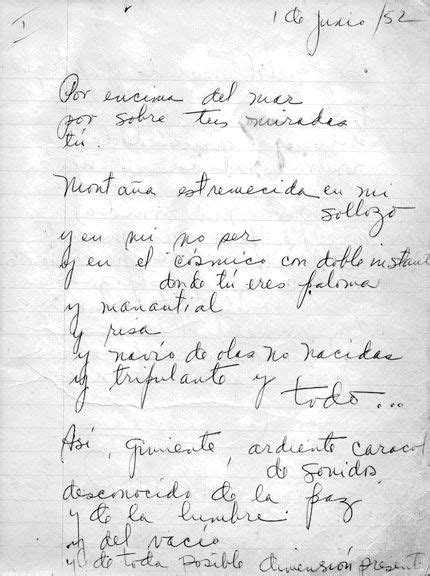 I
1 de junio /52
Por encima del mar
por sobre tus miradas
tú.
Montaña estremecida en mi
sollozo
y en mi no ser
y en el cósmico con doble instant
donde tú eres paloma
y manantial
y risa
y navío de olas no nacidas
y tripulante y todo...
Así, gimiente, ardiente caracol
de sonidos
desconocido de la paz
y de la lumbre
y del vacío
y de toda posible dimensión presente